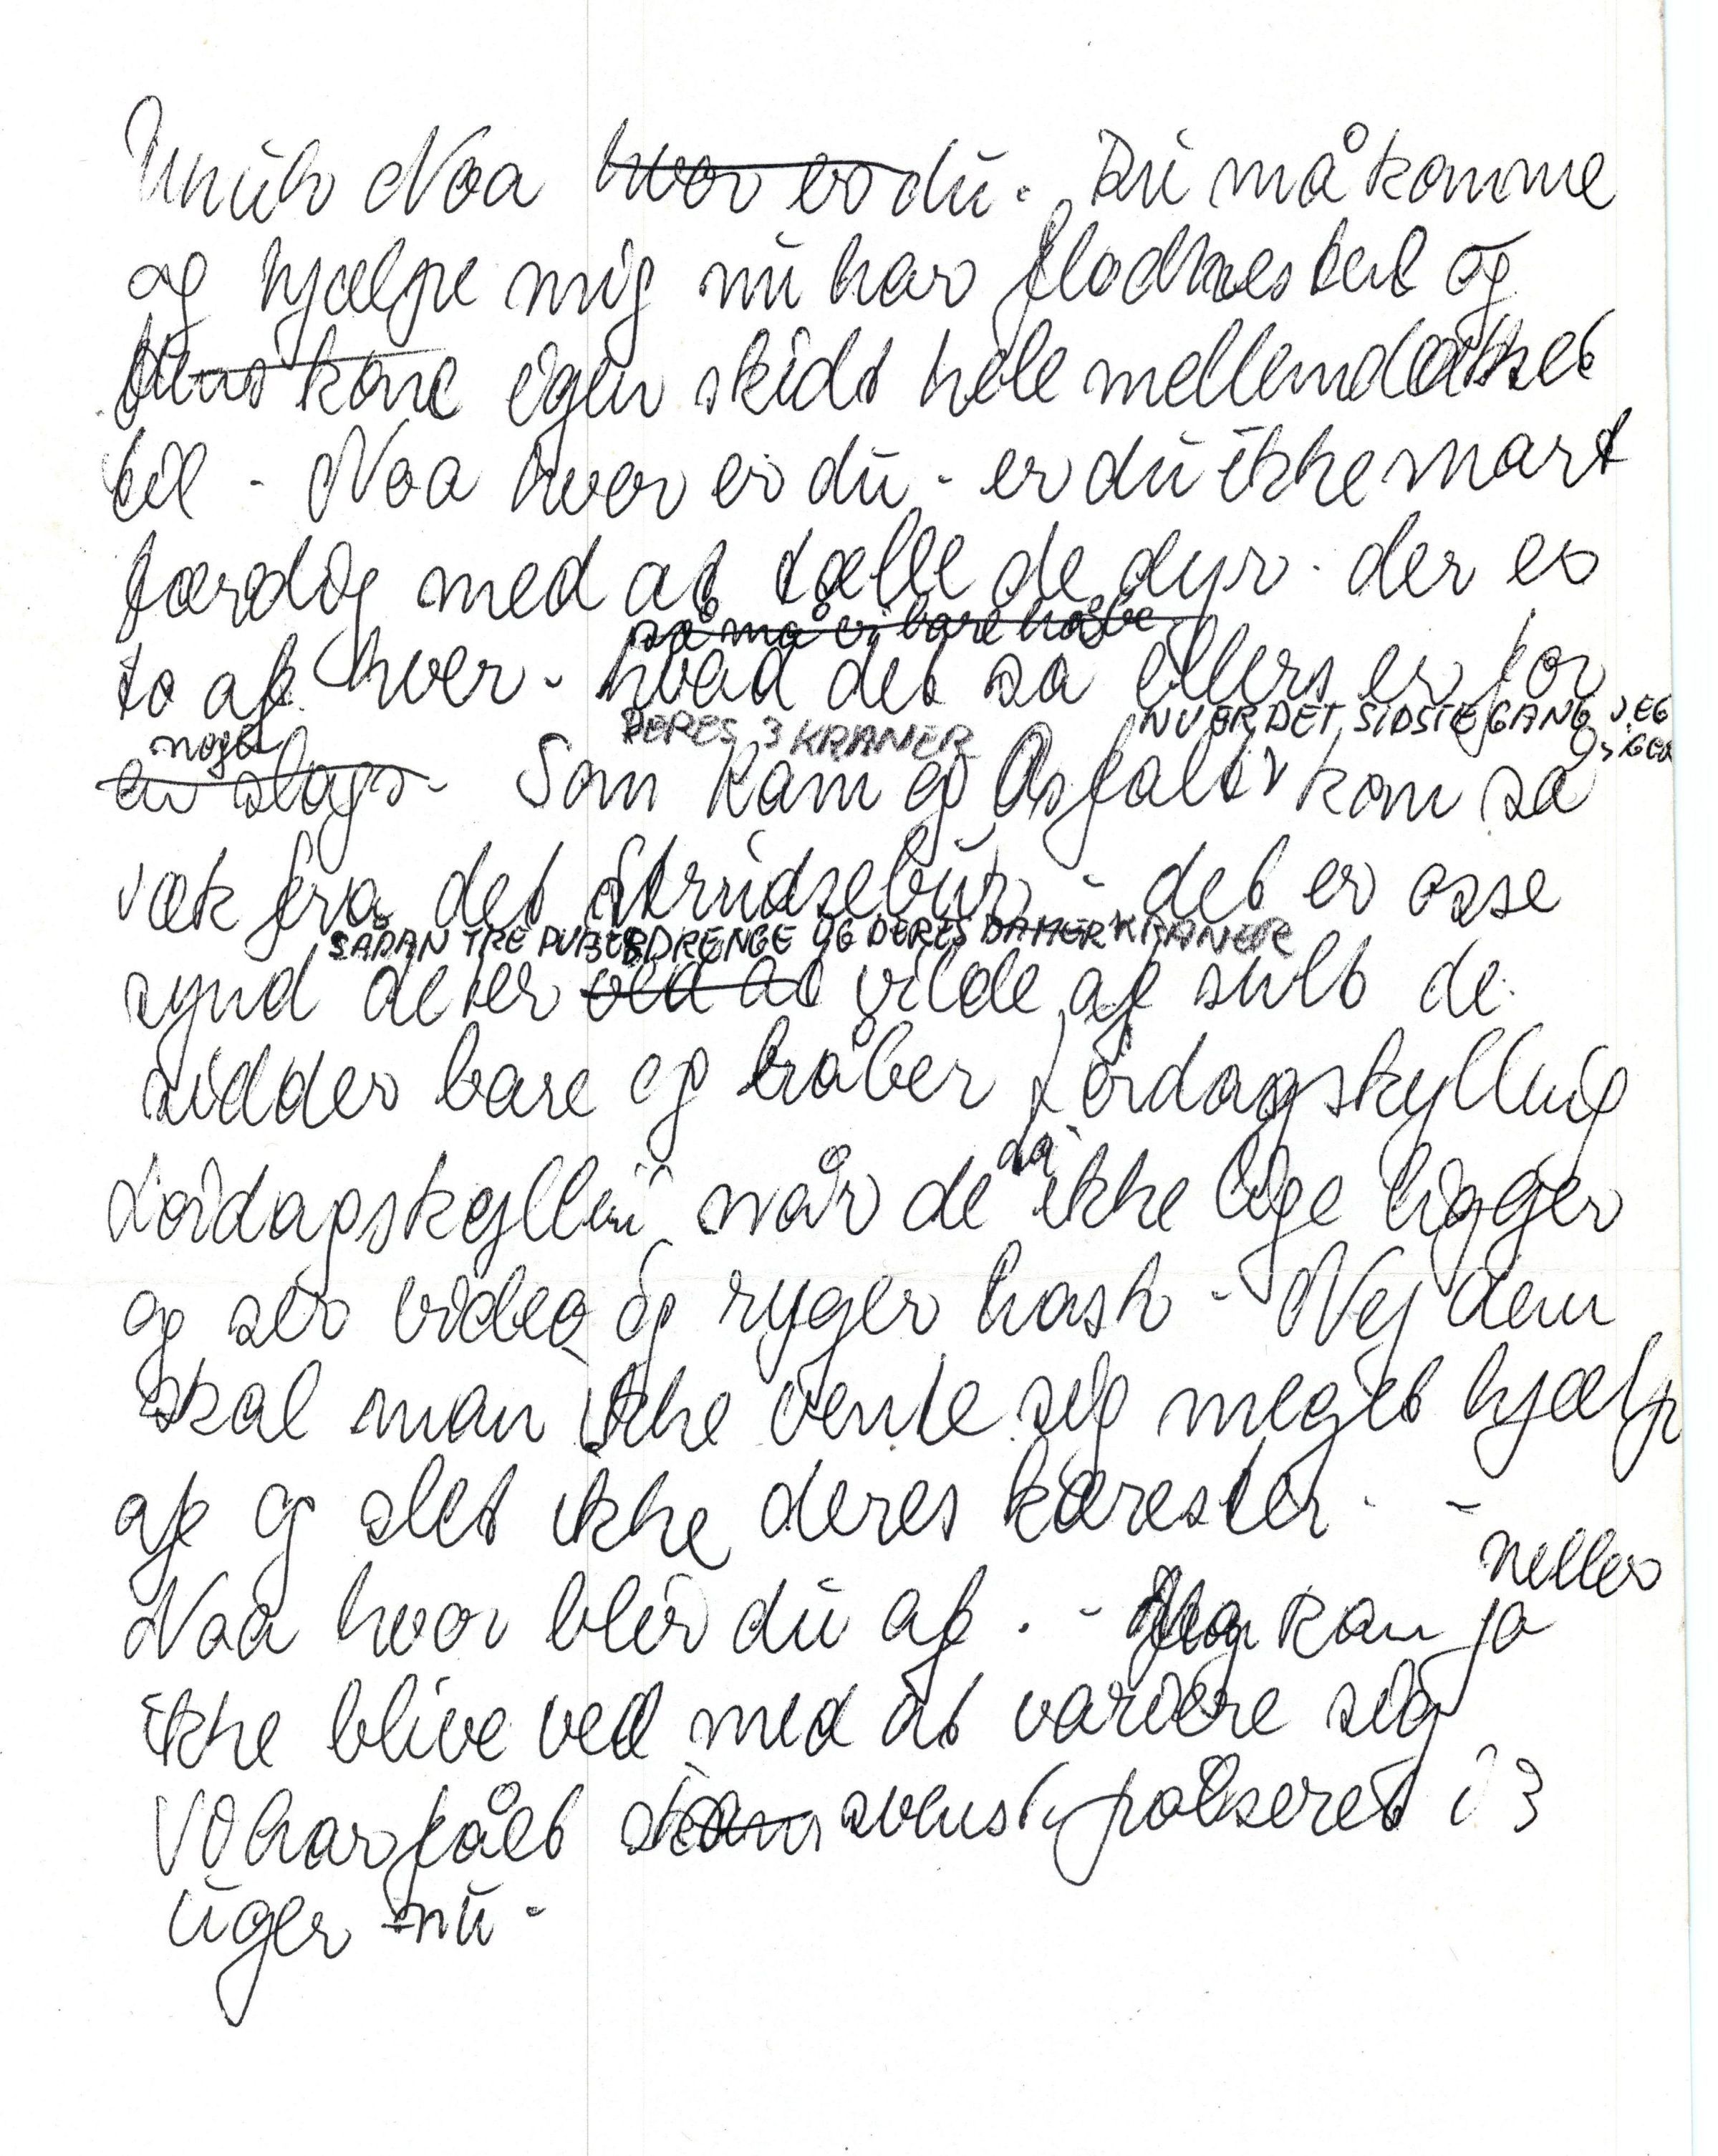 Uhuh Noa hvor er du. Du må komme
og hjælpe mig nu har flodhestene og
kone igen skidt hele mellemdækket
til - Noa hvor er du - er du ikke snart
færdig med at tælle de dyr. der er
så må vi bare håbe
to af hver - hvad det så ellers er for
DERES 3 KRANER NU ER DET SIDSTE GANG JEG SIGER
noget
en slags - Som Kam og Asfalt kom så
væk fra det strudsebur - det er osse
SÅDAN TRE PUBERDRENGE OG DERES DAMER KRANER
synd de er ved at vilde af sult de
sidder bare og råber Lørdagskylling
da
Lørdagskylling når de ikke lige ligger
og ser video og ryger hash - Nej dem
skal man ikke vente sig meget hjælp
af og slet ikke deres kærester - -
heller
Noa hvor blir du af . - Jeg kan jo
ikke blive ved med at variere sig
Vi har fået svensk pølseret i 3
uger nu -